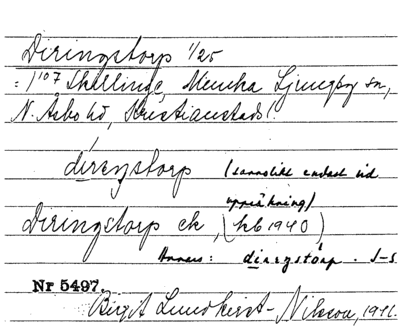 Diringstorp 1/25
= 1/107 Skillinge, Munka Ljungby sn,
N. Åsbo hd, Kristianstads l.
direnstorp (sannolikt endast vid
uppräkning)
Diringstorp ek, (kb 1940)
Annars: direnstorp . J-S
Nr 5497.
Birgit Lundkvist-Nilsson, 1941.